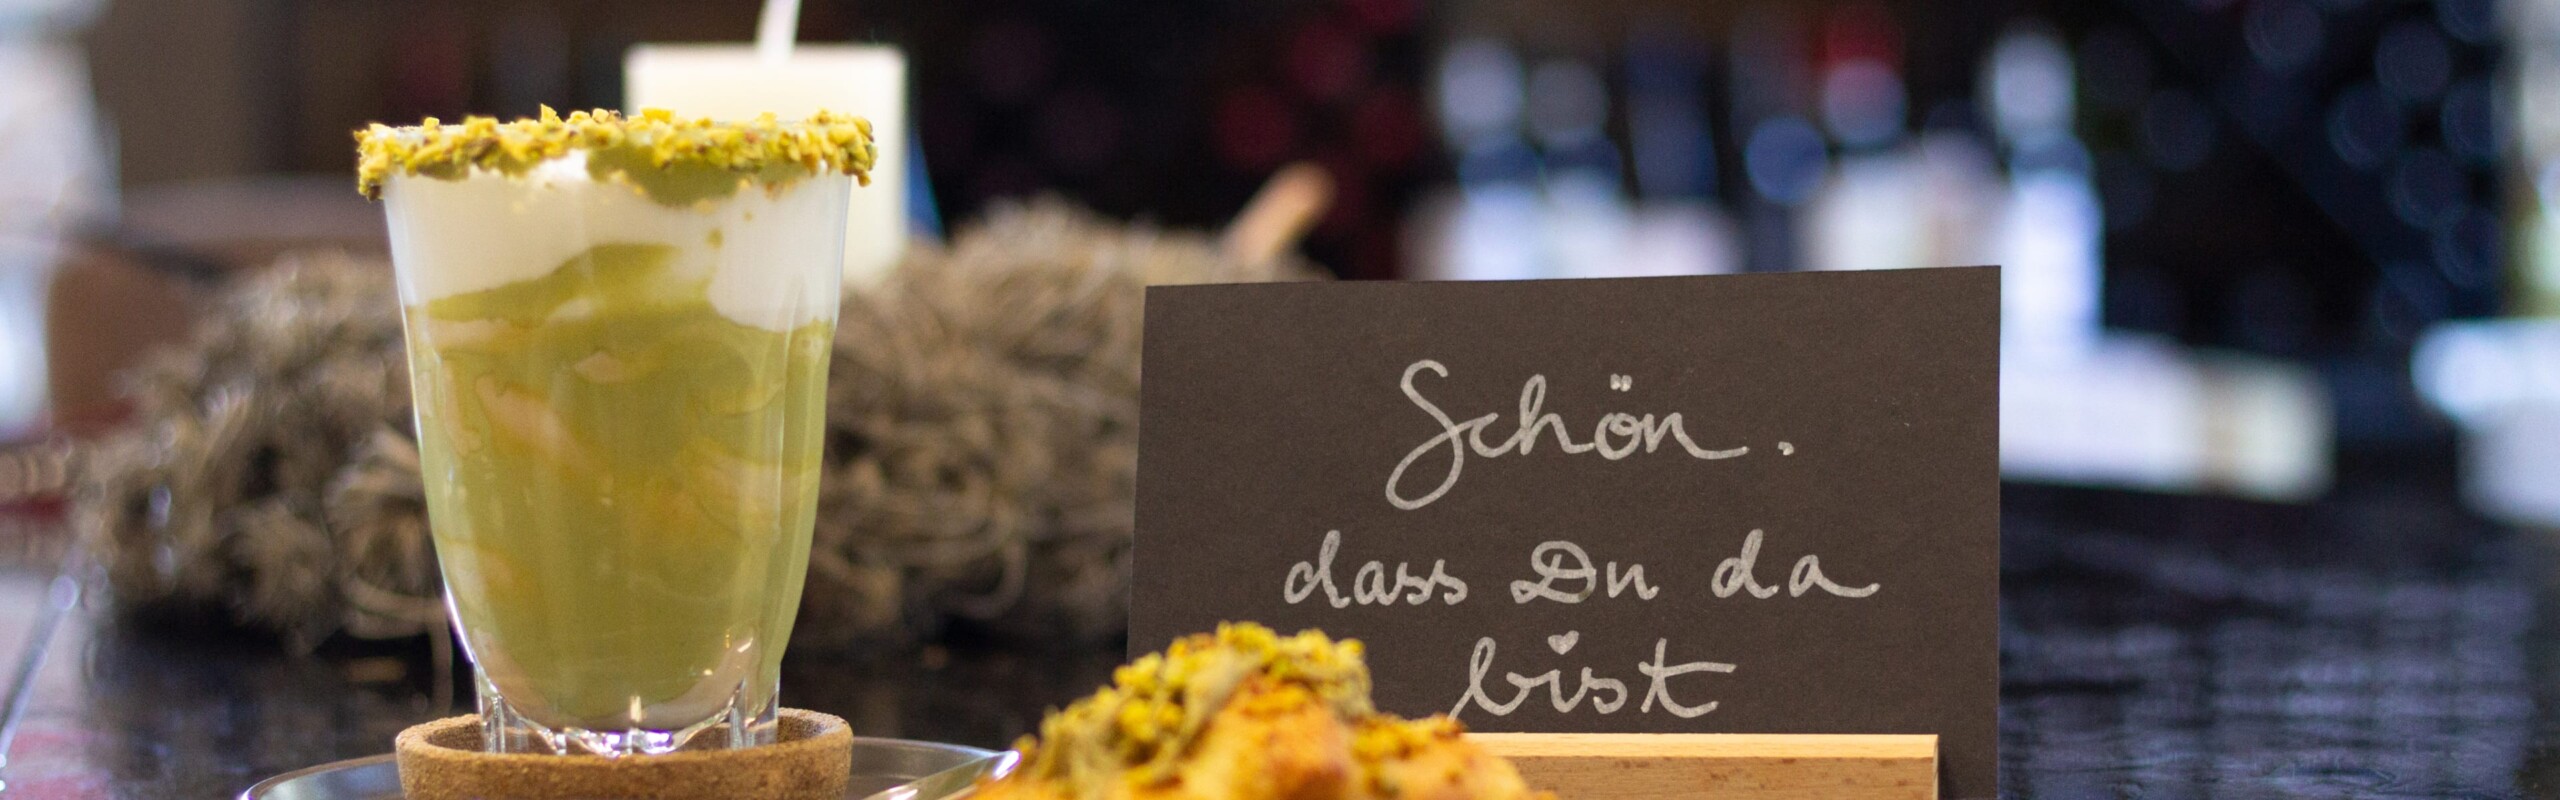 Schön.
dass Du da
bist